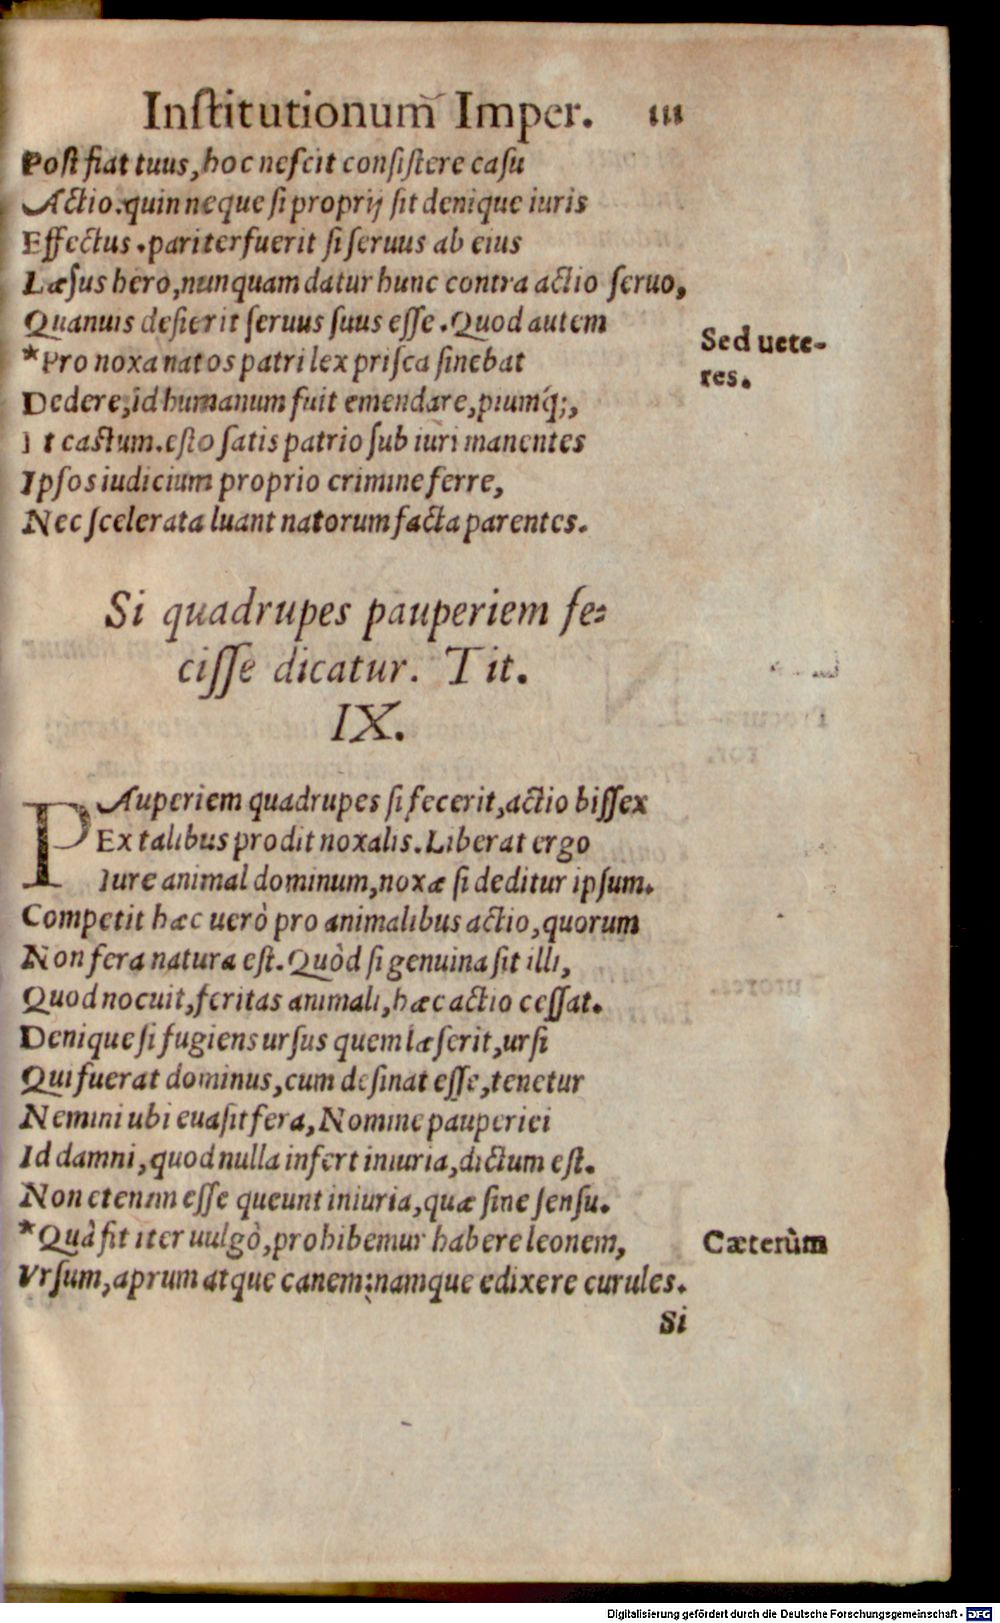 Institutionum Imper. 111
Post fiat tuus, hoc nescit consistere casu
Actio. quin neque si proprij sit denique iuris
Effectus. pariter fuerit si seruus ab eius
Læsus hero, nunquam datur hunc contra actio seruo,
Quanuis desierit seruus suus esse. Quod autem
Sed uete-
res.
*Pro noxa natos patri lex prisca sinebat
Dedere, id humanum fuit emendare, piumq́;,
Et castum. esto satis patrio sub iuri manentes
Ipsos iudicium proprio crimine ferre,
Nec scelerata luant natorum facta parentes.
Si quadrupes pauperiem fe-
cisse dicatur. Tit.
IX.
PAuperiem quadrupes si fecerit, actio bissex
Ex talibus prodit noxalis. Liberat ergo
Iure animal dominum, noxæ si deditur ipsum.
Competit hæc uerò pro animalibus actio, quorum
Non fera natura est. Quòd si genuina sit illi,
Quod nocuit, feritas animali, hæc actio cessat.
Denique si fugiens ursus quem læserit, ursi
Qui fuerat dominus, cum desinat esse, tenetur
Nemini ubi euasit fera, Nomine pauperiei
Id damni, quod nulla infert iniuria, dictum est.
Non etenim esse queunt iniuria, quæ sine sensu.
*Quà fit iter uulgò, prohibemur habere leonem,
Cæterùm
Vrsum, aprum atque canem: namque edixere curules.
Si
Digitalisierung gefördert durch die Deutsche Forschungsgemeinschaft - DFG